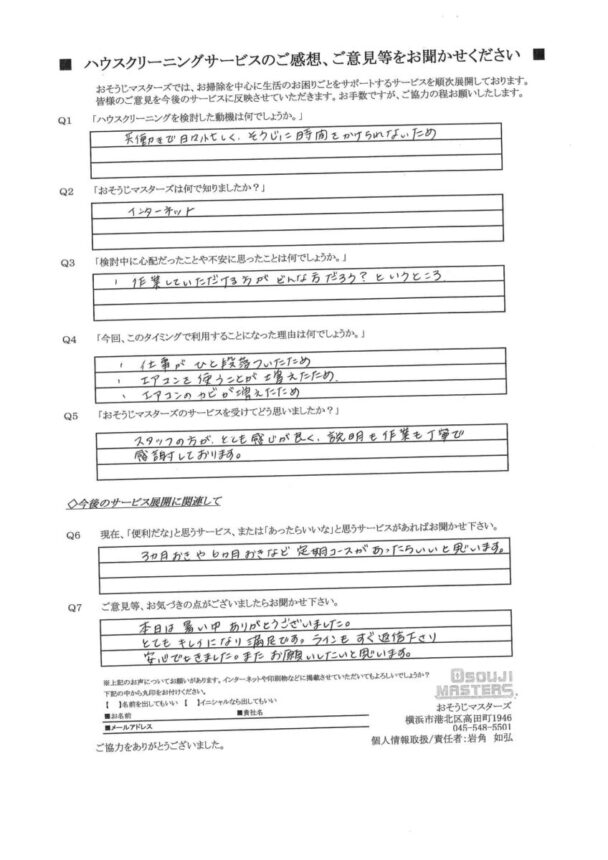 ■ ハウスクリーニングサービスのご感想、ご意見等をお聞かせください ■
おそうじマスターズでは、お掃除を中心に生活のお困りごとをサポートするサービスを順次展開しております。
皆様のご意見を今後のサービスに反映させていただきます。お手数ですが、ご協力の程お願いしたします。
Q1 「ハウスクリーニングを検討した動機は何でしょうか。」
共働きで日々忙しく、そうじに時間をかけられないため
Q2 「おそうじマスターズは何で知りましたか？」
インターネット
Q3 「検討中に心配だったことや不安に思ったことは何でしょうか。」
、作業していただける方がどんな方だろう？というところ
Q4 「今回、このタイミングで利用することになった理由は何でしょうか。」
、仕事がひと段落ついたため
、エアコンを使うことが増えたため
、エアコンのカビが増えたため
Q5 「おそうじマスターズのサービスを受けてどう思いましたか？」
スタッフの方が、とても感じが良く、説明も作業も丁寧で
感謝しております。
◇今後のサービス展開に関連して
Q6 現在、「便利だな」と思うサービス、または「あったらいいな」と思うサービスがあればお聞かせ下さい。
3カ月おきや6カ月おきなど定期コースがあったらいいと思います。
Q7 ご意見等、お気づきの点がございましたらお聞かせ下さい。
本日は暑い中ありがとうございました。
とてもキレイになり満足です。ラインもすぐ返信下さり
安心できました。またお願いしたいと思います。
※上記のお声についてお願いがあります。インターネットや印刷物などに掲載させていただいてもよろしいでしょうか？
下記の中から丸印をお付けください。
【 】名前を出してもいい 【 】イニシャルなら出してもいい
■お名前 ■貴社名
■メールアドレス
ご協力をありがとうございました。
OSOUJI
MASTERS
おそうじマスターズ
横浜市港北区高田町1946
045-548-5501
個人情報取扱/責任者：岩角 如弘